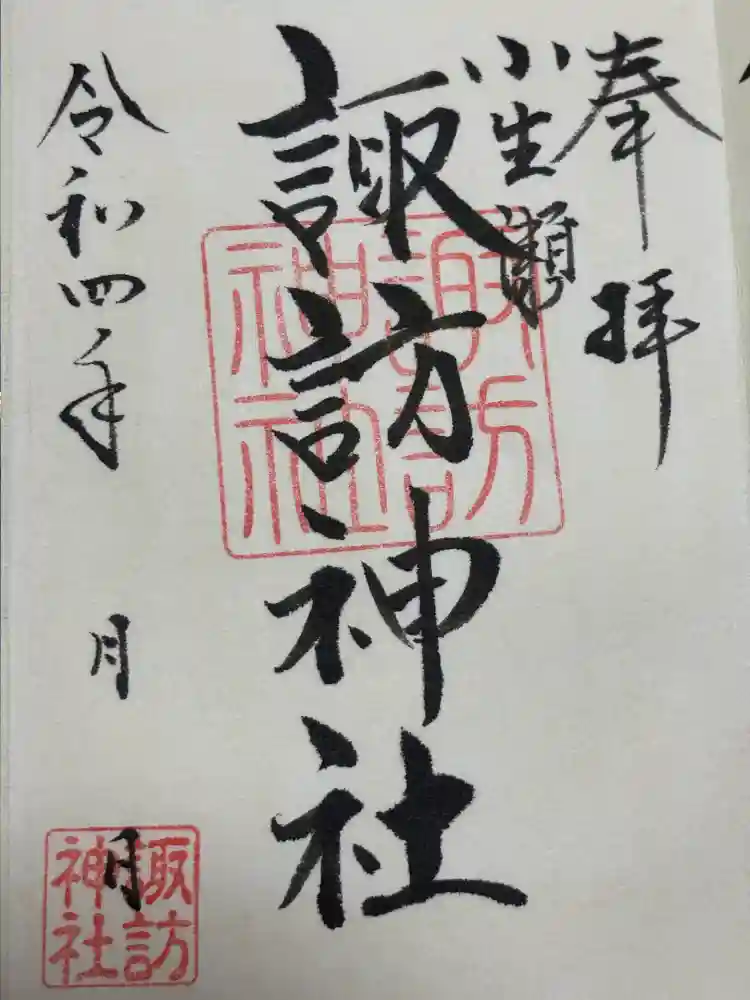 奉拝
小生瀬
諏訪神社
令和四年 月 日
諏訪神社
諏訪神社